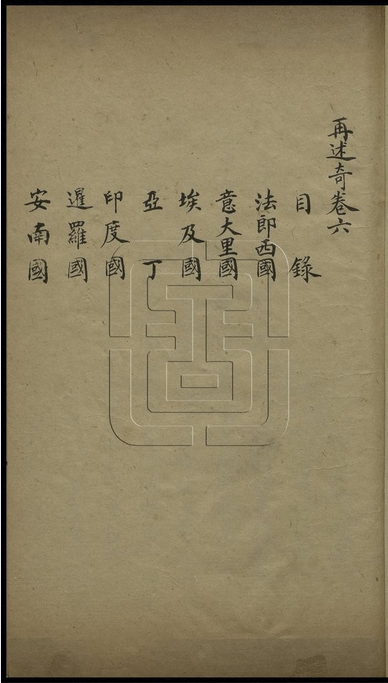 再述奇卷六
目錄
法郎西國
意大里國
埃及國
亞丁
印度國
暹羅國
安南國